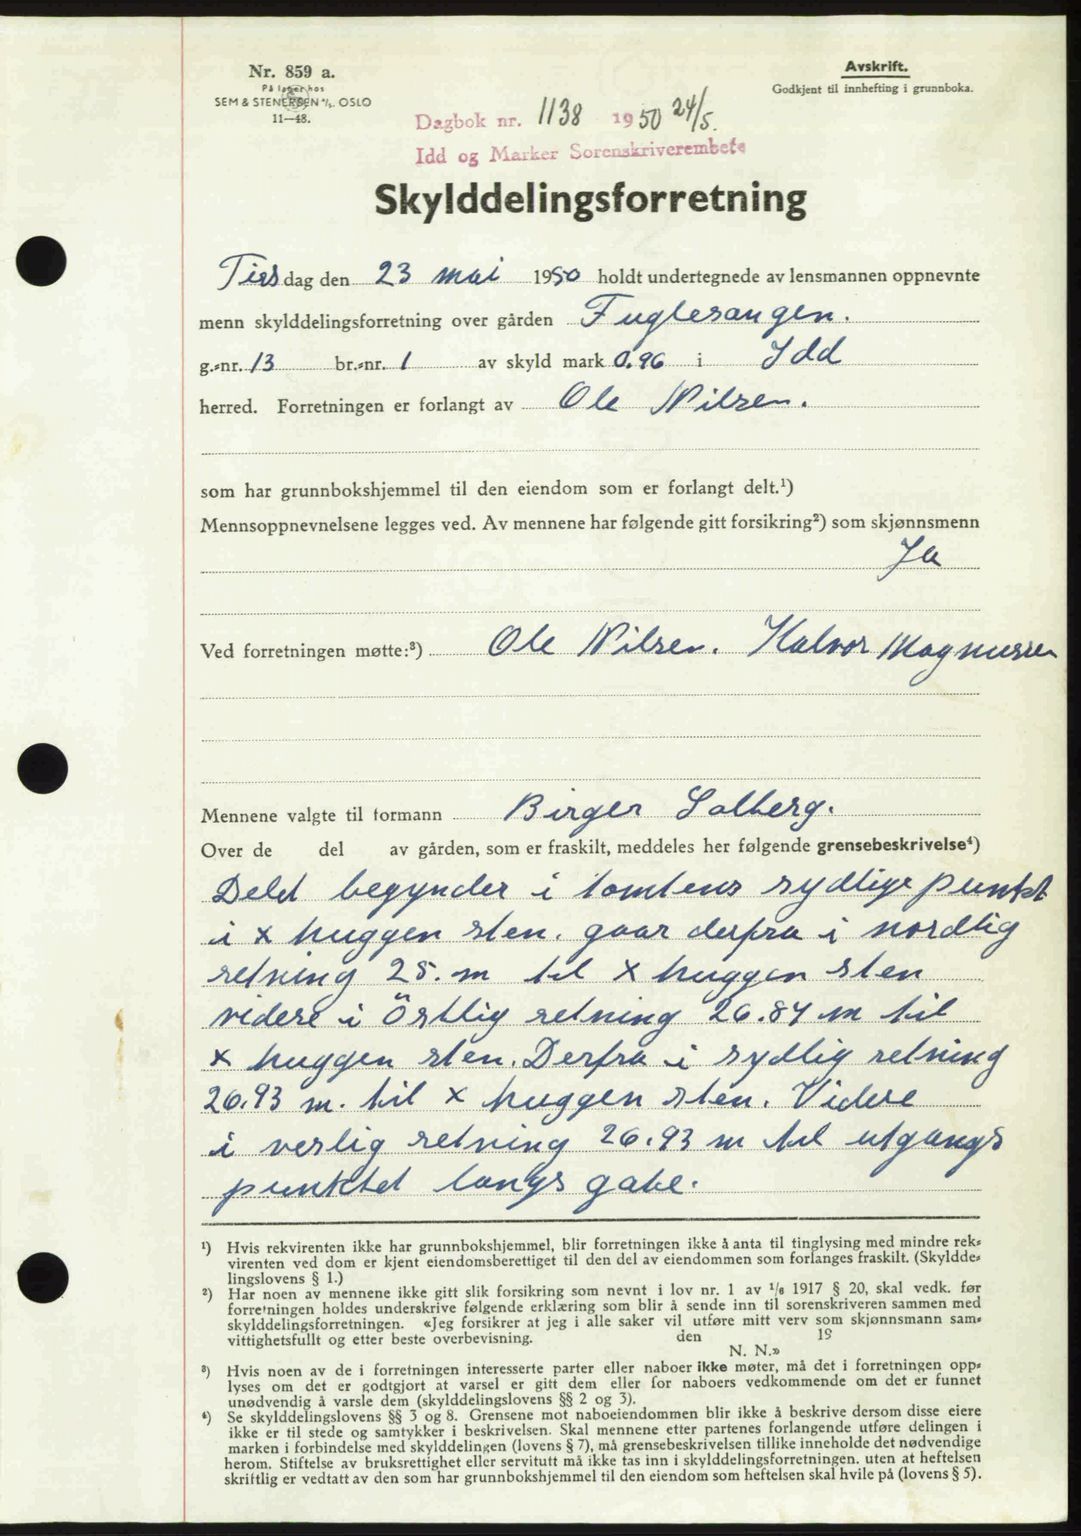 Nr. 859 a.
På lager hos
SEM & STENERSEN A/S. OSLO
11—48.
Avskrift.
Godkjent til innhefting i grunnboka.
Dagbok nr. 1138 1950 24/5.
Idd og Marker Sorenskriverembete
Skylddelingsforretning
Tirsdag den 23 mai 1950 holdt undertegnede av lensmannen oppnevnte
menn skylddelingsforretning over gården Fuglesangen.
g.-nr. 13 br.-nr. 1 av skyld mark 0.96 i Idd
herred. Forretningen er forlangt av Ole Nilsen.
som har grunnbokshjemmel til den eiendom som er forlangt delt.¹)
Mennsoppnevnelsene legges ved. Av mennene har følgende gitt forsikring²) som skjønnsmenn
Ja
Ved forretningen møtte:³) Ole Nilsen. Halvor Magnussen
Mennene valgte til formann Birger Solberg.
Over de del av gården, som er fraskilt, meddeles her følgende grensebeskrivelse⁴)
Delet begynder i tomtens sydlige punkt
i x huggen sten. gaar derfra i nordlig
retning 25.m til x huggen sten
videre i Östlig retning 26.84 m til
x huggen sten. Derfra i sydlig retning
26.93 m. til x huggen sten. Videre
i veslig retning 26.93 m til utgangs
punktet langs gate.
¹) Hvis rekvirenten ikke har grunnbokshjemmel, blir forretningen ikke å anta til tinglysing med mindre rek-
virenten ved dom er kjent eiendomsberettiget til den del av eiendommen som forlanges fraskilt. (Skyldde-
lingslovens § 1.)
²) Har noen av mennene ikke gitt slik forsikring som nevnt i lov nr. 1 av 1/6 1917 § 20, skal vedk. før
forretningen holdes underskrive følgende erklæring som blir å sende inn til sorenskriveren sammen med
skylddelingsforretningen. «Jeg forsikrer at jeg i alle saker vil utføre mitt verv som skjønnsmann sam-
vittighetsfullt og etter beste overbevisning. den 19
N. N.»
³) Hvis noen av de i forretningen interesserte parter eller naboer ikke møter, må det i forretningen opp-
lyses om det er godtgjort at varsel er gitt dem eller for naboers vedkommende om det er funnet
unødvendig å varsle dem (skylddelingslovens §§ 2 og 3).
⁴) Se skylddelingslovens §§ 3 og 8. Grensene mot naboeiendommen blir ikke å beskrive dersom disse eiere
ikke er til stede og samtykker i beskrivelsen. Skal mennene etter partenes forlangende utføre delingen i
marken i forbindelse med skylddelingen (lovens § 7), må grensebeskrivelsen tillike inneholde det nødvendige
herom. Stiftelse av bruksrettighet eller servitutt må ikke tas inn i skylddelingsforretningen, uten at heftelsen
skriftlig er vedtatt av den som har grunnbokshjemmel til den eiendom som heftelsen skal hvile på (lovens § 5).